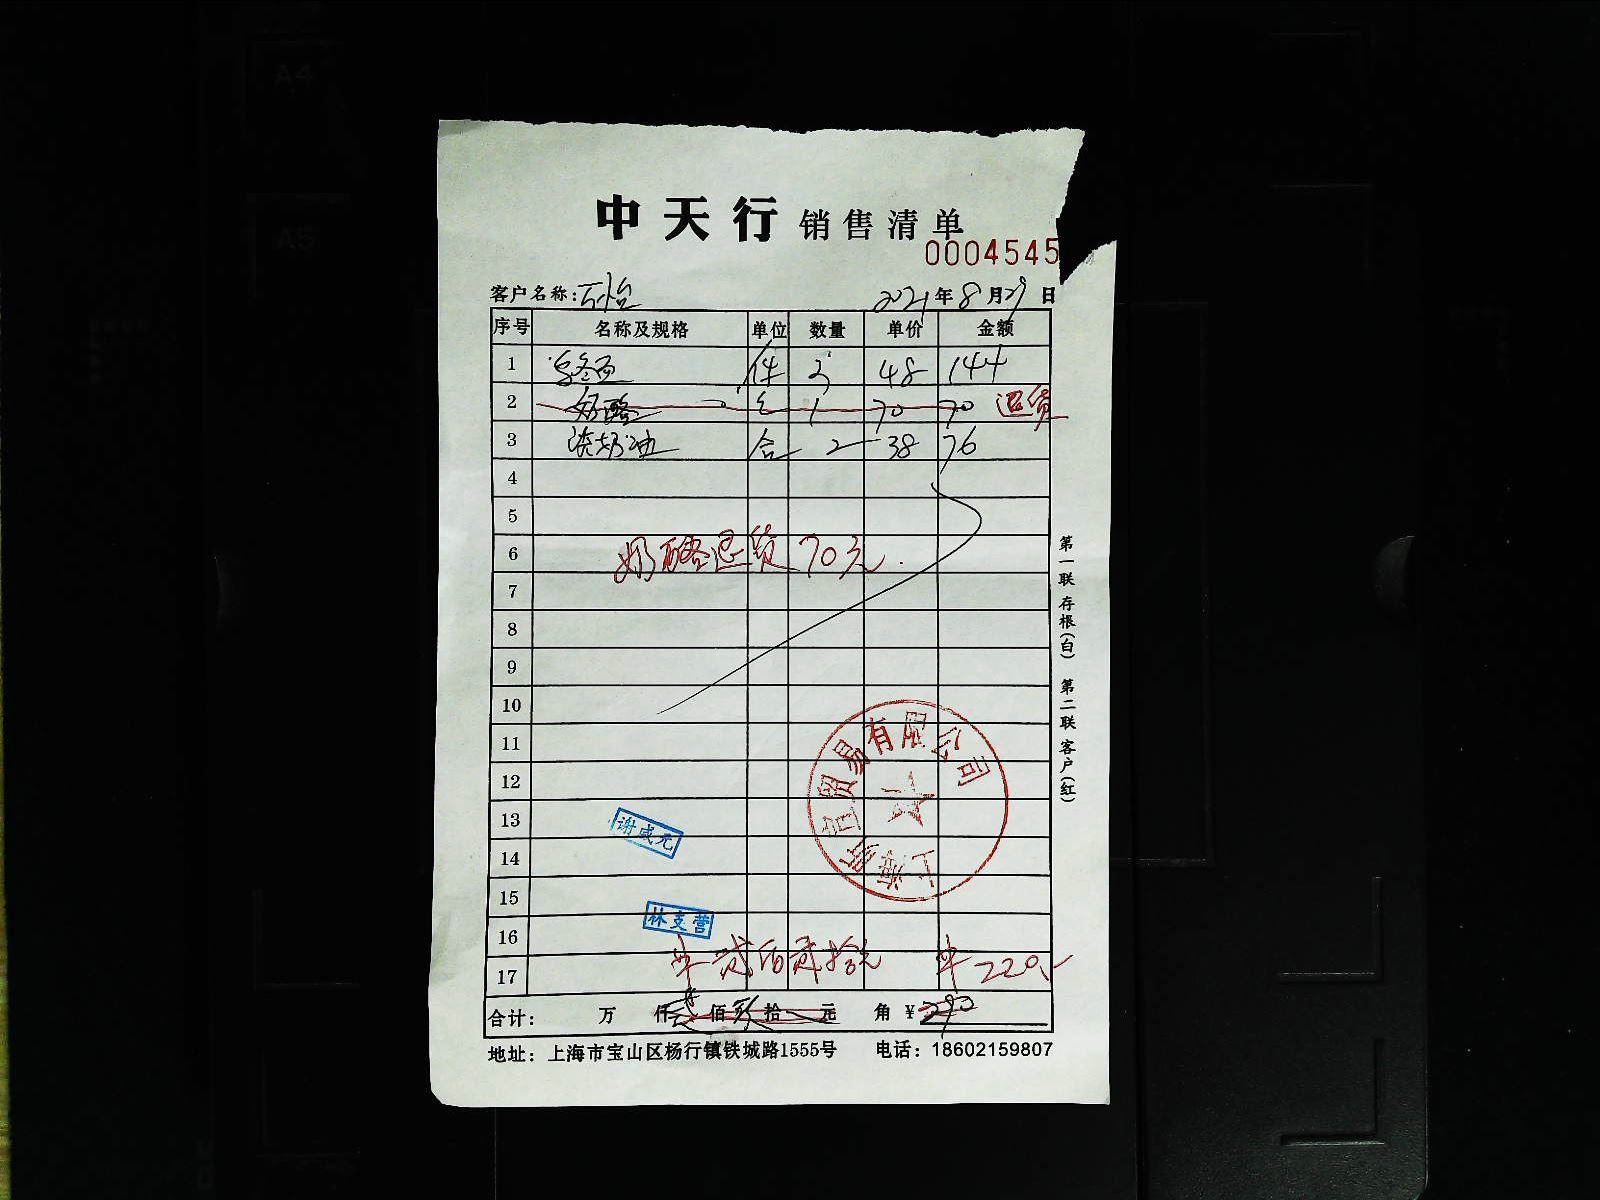 A4
A5
中天行 销售清单
0004545
客户名称: 2021年8月29日
序号 名称及规格 单位 数量 单价 金额
1 乌冬面 件 3 48 144
2 奶酪 包 1 70 70 退货
3 淡奶油 合 2 38 76
4
5
6 奶酪退货70元.
7
8
9
10
11
12
13 谢咸元
14
15
16 林支营
17 ¥贰佰贰拾元 ¥220.-
合计: 万 仟 佰 玖拾 元 角 ¥290
地址：上海市宝山区杨行镇铁城路1555号 电话：18602159807
第一联 存根(白) 第二联 客户(红)
贸易有限公司